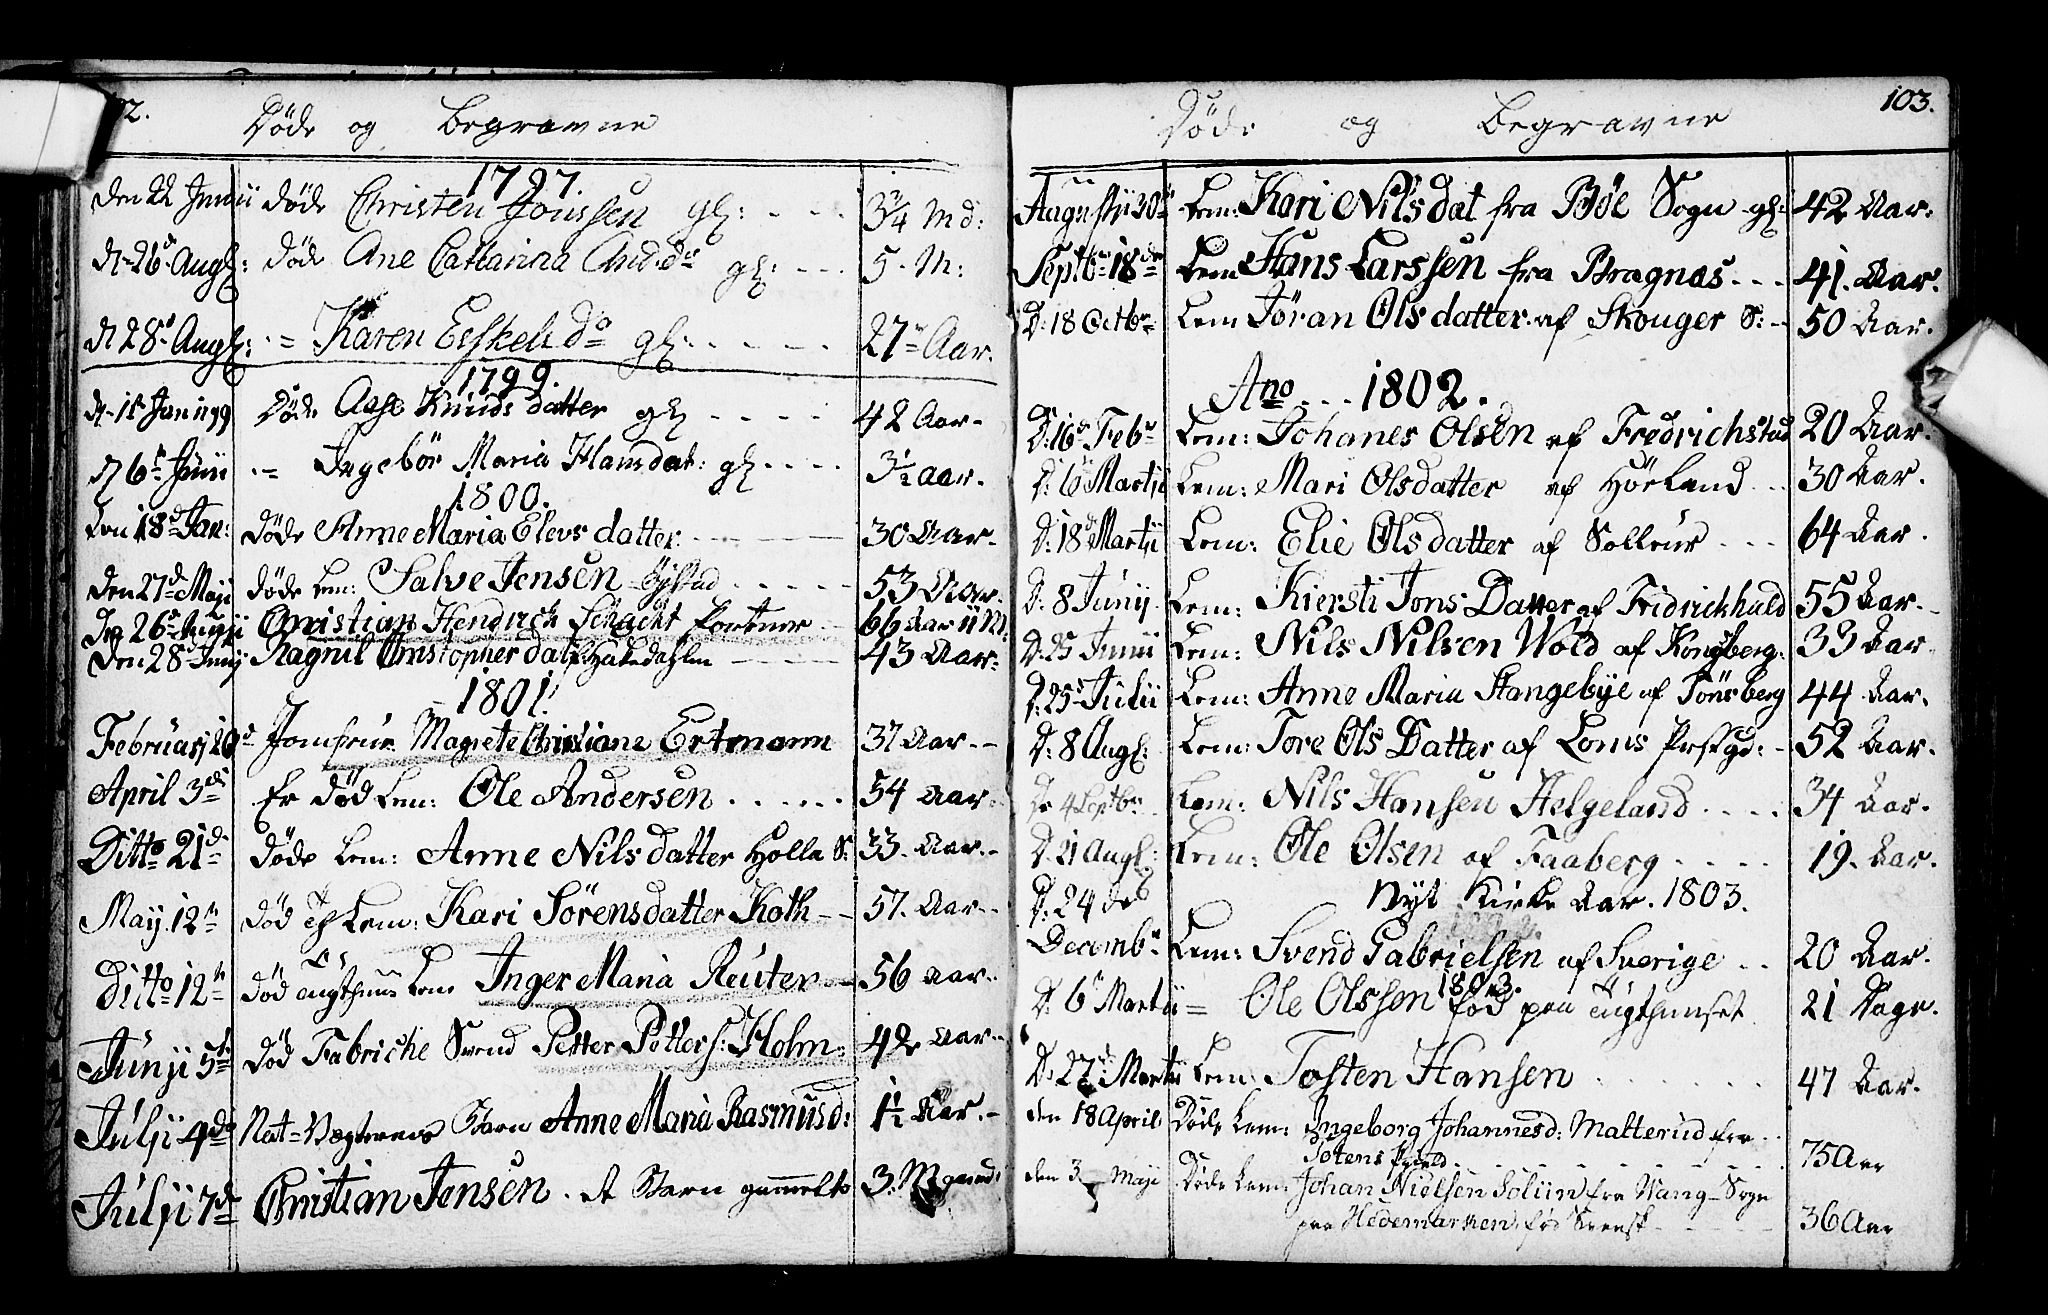 2. Døde og Begravne
1797.
den 22 Junii døde Christen Jonssen gl: 3/4 Md:
d. 26 Augl: døde Ane Cattarina And:dr gl: 5. M:
d 28 Augl: Karen Esskels dr gl: 27 Aar.
1799.
d. 11 Jan 1799 Døde Aase Knuds datter gl 42 Aar
d 6 Junii Ingebör Maria Hansdat: gl 3 1/2 Aar.
1800.
den 18d Jan: døde Anne Maria Elevs datter 30 Aar
den 27d Maji døde Lem: Salve Jensen 53 Aar
den 26 Christian Hendrich Schacht Portner 66 Aar 11 M:
den 28d Junij Ragnil Christopher dat: Hakedahlen 43 Aar
1801.
Februarj 20 Jomfrue Magrete Christiane Ertmann 37 Aar
April 3de Er død Lem: Ole Andersen 54 Aar
Ditto 21d døde Lem: Anne Nils datter Holla S: 33 Aar
May 12te død Lem: Kari Sörensdatter Koth 57. Aar
Ditto 12te død Tugthuus Lem Inger Maria Reuter 56 Aar
Junji 5te død Fabriche Svend Petter Petters: Holm 42 Aar
Julji 4de Nat-Vegterens Barn Anne Maria Rasmusd: 1 1/2 Aar
Julji 7de Christian Jensen. et Barn gammelt 3. Maaned:
Døde og Begravne 103.
Augustii 30te Lem: Kari Nilsdat fra Böe Sogn gl: 42 Aar.
Septbr 18de Lem Hans Larssen fra Bragnæs 41. Aar.
D: 18 Octbr Lem Jöran Olsdatter af Skouger S: 50 Aar.
Ano 1802.
D: 16 Febr Lem: Johanes Olsen af Fredrichstad 20 Aar.
D: 6 Martii Lem: Mari Olsdatter af Hörland 30 Aar.
D: 18d Martii Lem: Elie Olsdatter af Solleur 64 Aar.
D: 8 Junij Lem: Kiersti Jons Datter af Fridrickhald 55 Aar.
D: 25 Junii Lem: Nils Nilsen Wold af Kongberg. 33 Aar
D: 25 Julii Lem: Anne Maria Stangebye af Tönsberg 44 Aar.
D: 8 Augl: Lem: Tore Ols Datter af Loms Prstgd: 52 Aar.
D: 4 Septbr Lem: Nils Hansen Helgeland 34 Aar.
D. 21 Augl: Lem: Ole Olsen af Faaberg 19. Aar.
D: 24 des Nyt Kirke Aar. 1803.
Decembr Lem: Svend Gabrielsen af Sverige 20 Aar.
1803.
D: 6 Martii Ole Olssen fød paa Tugthuuset 21 Dage.
D: 27d Martii Lem: Tosten Hansen 47 Aar.
den 18 April: Døde Lem: Ingeborg Johannesd: Malterud fra
Totens 75 Aar
den 3 Maji Døde Lem: Johan Nielsen Solün fra Wang-Sogn
paa Hedemarken, fød Svensk 36 Aar